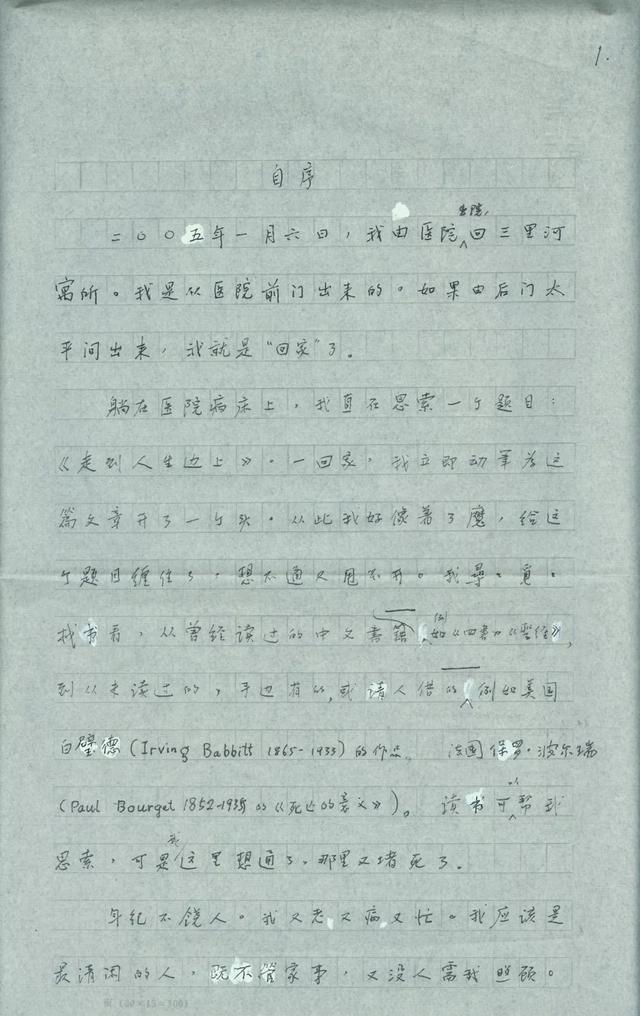 1.
自序
二〇〇五年一月六日，我由医院出院，回三里河
寓所。我是从医院前门出来的。如果由后门太
平间出来，我就是“回家”了。
躺在医院病床上，我直在思索一个题目：
《走到人生边上》。一回家，我立即动笔为这
篇文章开了一个头。从此我好像着了魔，给这
个题目缠住了，想不通又甩不开。我寻寻觅觅
找书看，从曾经读过的中文书籍例如《四书》《圣经》，
到从未读过的，手边有的，或请人借的例如美国
白璧德（Irving Babbitt 1865-1933）的作品，法国保罗·波尔瑞
（Paul Bourget 1852-1935 的《死亡的意义》）。读书可以帮我
思索，可是我这里想通了，那里又堵死了。
年纪不饶人。我又老又病又忙。我应该是
最清闲的人，既不管家事，又没人需我照顾。
(20×15=300)